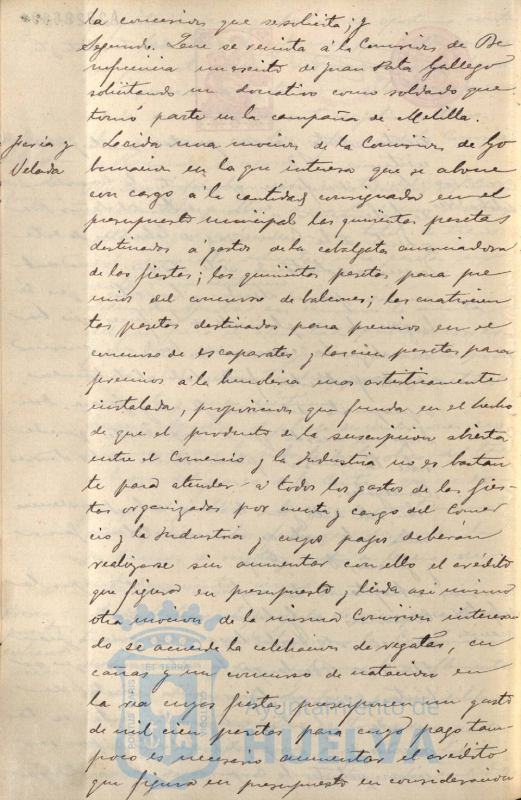 la concesion que se solicita; y
Segundo. Que se remita á la Comision de Be
neficencia un escrito de Juan Pata Gallego
solicitando un donativo como soldado que
tomó parte en la campaña de Melilla.
Feria y
Velada
Leida una mocion de la Comision de Go
bernacion en la que interesa que se abone
con cargo á la cantidad consignada en el
presupuesto municipal las quinientas pesetas
destinadas á gastos de la cabalgata anunciadora
de las fiestas; las quinientas pesetas para pre
mios del concurso de balcones; las cuatrocien
tas pesetas destinadas para premios en el
concurso de escaparates y las cien pesetas para
premios á la más artisticamente
instalada, proposicion que funda en el hecho
de que el producto de la suscripcion abierta
entre el Comercio y la Industria no es bastan
te para atender á todos los gastos de las fies-
tas organizadas por cuenta y cargo del Comer
cio y la Industria y cuyos pagos deberán
realizarse sin aumentar con ello el crédito
que figura en presupuesto y leida asi mismo
otra mocion de la misma Comision interesan
do se acuerde la celebracion de regatas, cu
cañas y un concurso de natacion en
la ria cuyas fiestas presuponen un gasto
de mil cien pesetas para cuyo pago tam
poco es necesario aumentar el crédito
que figura en presupuesto en consideracion
PORTUS MARIS
ET TERRÆ
CUSTODIA
Ayuntamiento de
HUELVA